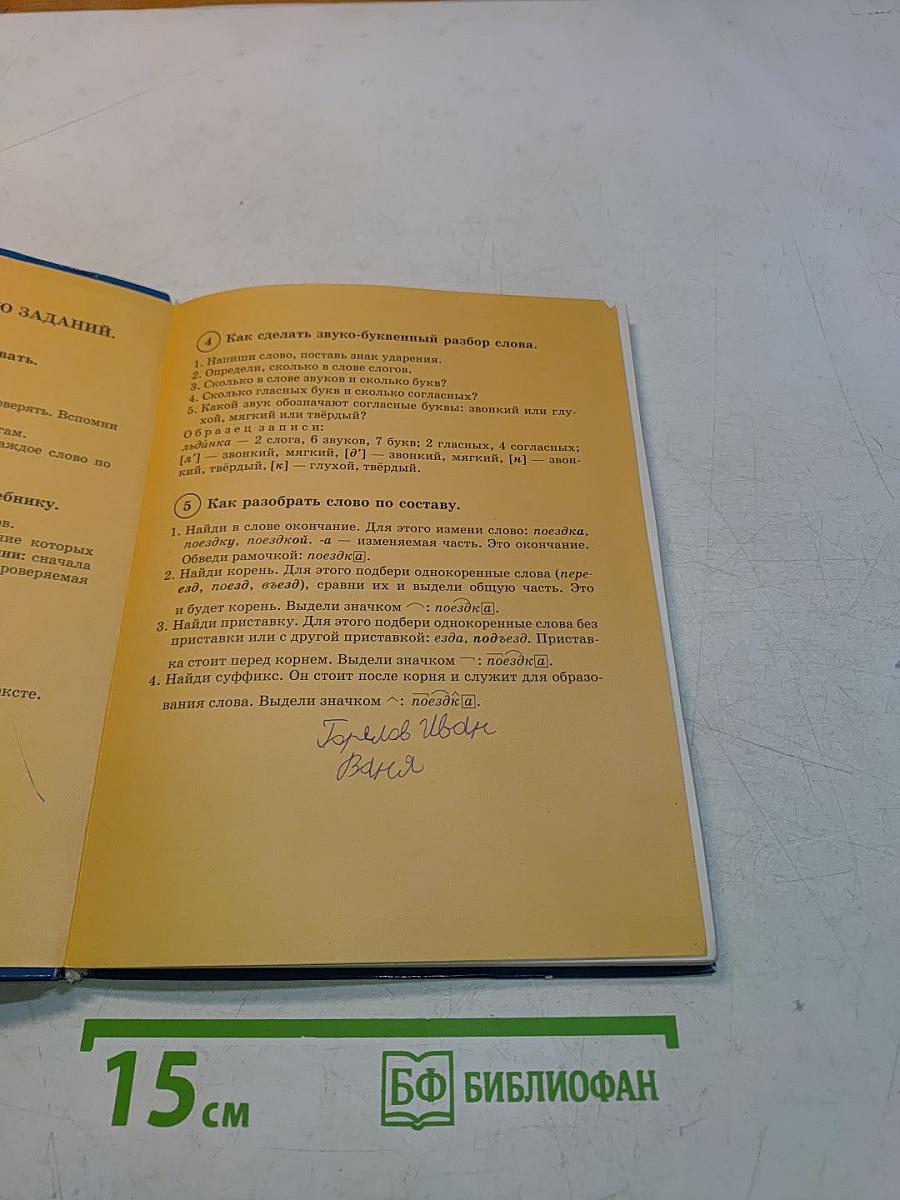 Ю ЗАДАНИЙ.
вать.
оверять. Вспомни
гам.
аждое слово по
ебнику.
ов.
ние которых
ни: сначала
роверяемая
ксте.
4 Как сделать звуко-буквенный разбор слова.
1. Напиши слово, поставь знак ударения.
2. Определи, сколько в слове слогов.
3. Сколько в слове звуков и сколько букв?
4. Сколько гласных букв и сколько согласных?
5. Какой звук обозначают согласные буквы: звонкий или глу-
хой, мягкий или твёрдый?
Образец записи:
льди́нка — 2 слога, 6 звуков, 7 букв; 2 гласных, 4 согласных;
[л’] — звонкий, мягкий, [д’] — звонкий, мягкий, [н] — звон-
кий, твёрдый, [к] — глухой, твёрдый.
5 Как разобрать слово по составу.
1. Найди в слове окончание. Для этого измени слово: поездка,
поездку, поездкой. -а — изменяемая часть. Это окончание.
Обведи рамочкой: поездка.
2. Найди корень. Для этого подбери однокоренные слова (пере-
езд, поезд, въезд), сравни их и выдели общую часть. Это
и будет корень. Выдели значком ⌒: поездка.
3. Найди приставку. Для этого подбери однокоренные слова без
приставки или с другой приставкой: езда, подъезд. Пристав-
ка стоит перед корнем. Выдели значком ¬: поездка.
4. Найди суффикс. Он стоит после корня и служит для образо-
вания слова. Выдели значком ^: поездка.
Горелов Иван
Ваня
15 см
БФ БИБЛИОФАН